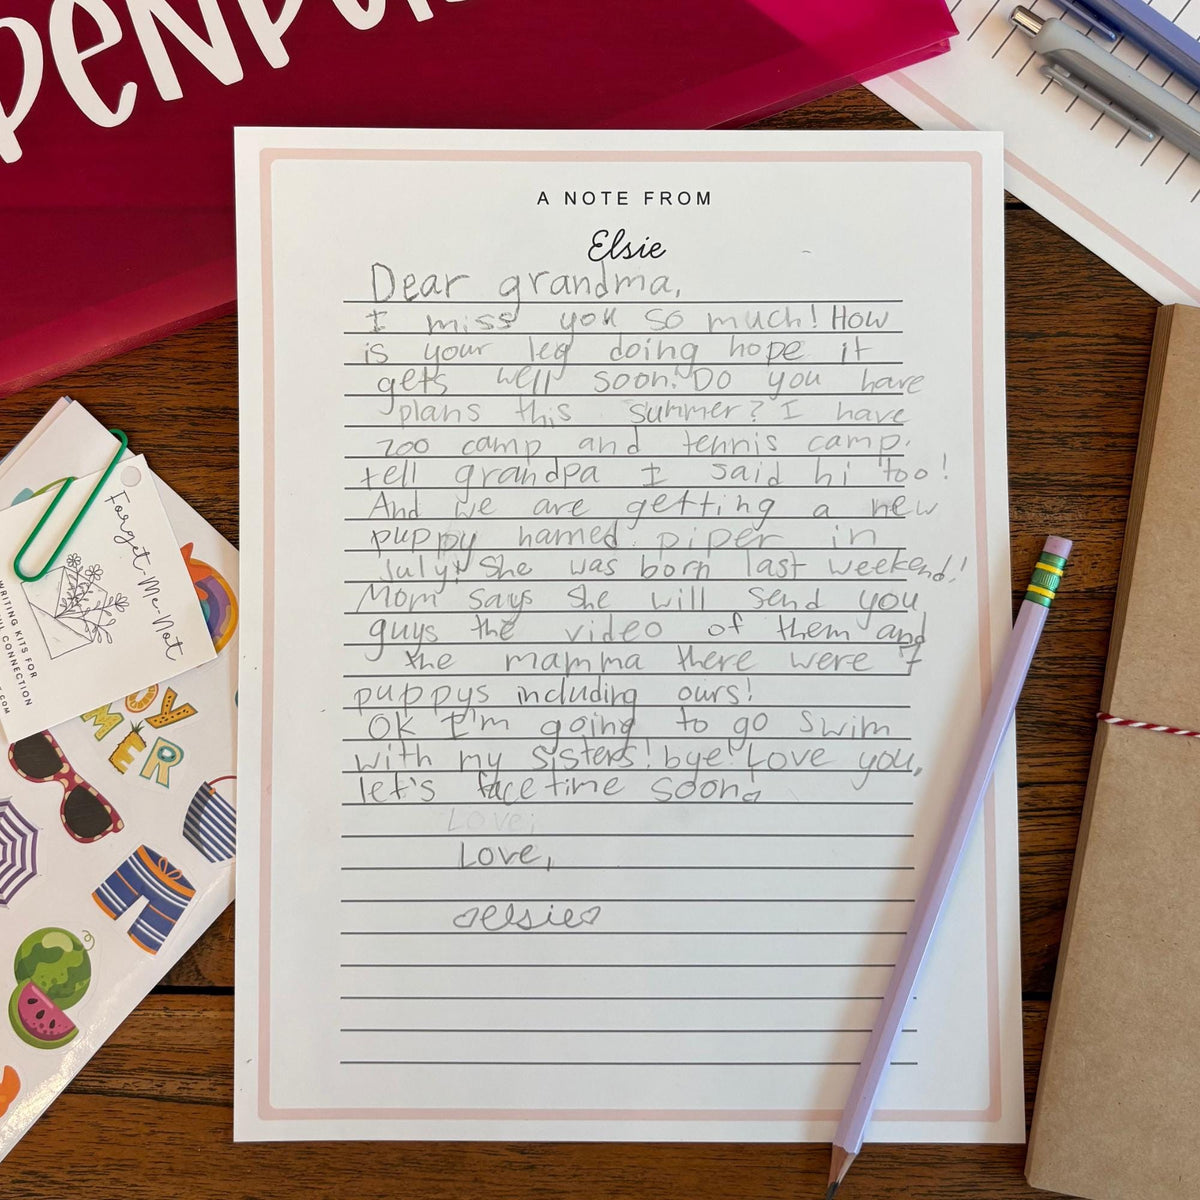 PENPAL
A NOTE FROM
Elsie
Dear grandma,
I miss you so much! How
is your leg doing hope it
gets well soon! Do you have
plans this summer? I have
zoo camp and tennis camp.
tell grandpa I said hi too!
And we are getting a new
puppy named piper in
July! She was born last weekend!
Mom says she will send you
guys the video of them and
the mamma there were 7
puppys including ours!
Ok I'm going to go swim
with my sisters! bye! Love you,
let's facetime soon.
Love,
Love,
elsie
Forget Me-Not
WRITING KITS FOR
CONNECTION